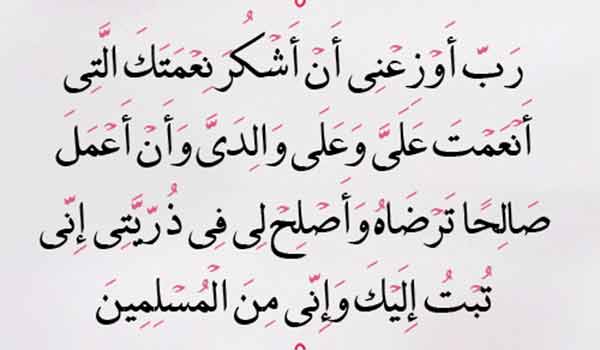 رَبِّ أَوْزِعْنِی أَنْ أَشْکُرَ نِعْمَتَكَ الَّتِی
أَنْعَمْتَ عَلَیَّ وَعَلَی وَالِدَیَّ وَأَنْ أَعْمَلَ
صَالِحًا تَرْضَاهُ وَأَصْلِحْ لِی فِی ذُرِّیَّتِی إِنِّی
تُبْتُ إِلَیْكَ وَإِنِّی مِنَ الْمُسْلِمِینَ